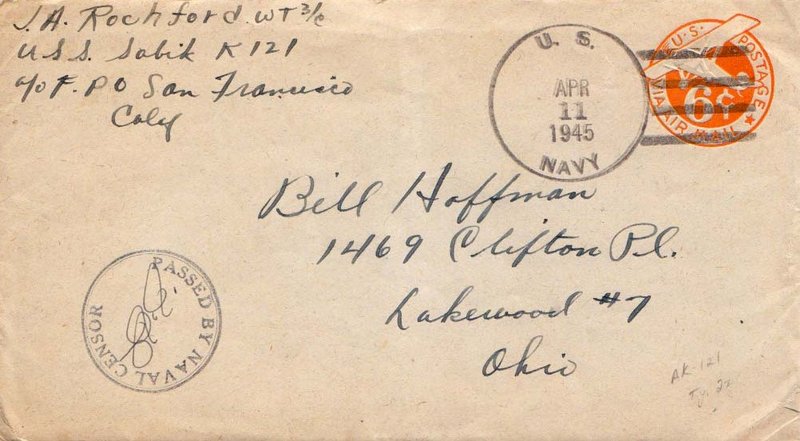 J.A. Rochford WT 3/c
U.S.S. Sabik K 121
c/o F.PO San Francisco
Caly
U. S.
APR
11
1945
NAVY
U.S. POSTAGE
6¢
VIA AIR MAIL
Bill Hoffman
1469 Clifton Pl.
Lakewood #7
Ohio
PASSED BY NAVAL CENSOR
AK-121
Ty. 2z